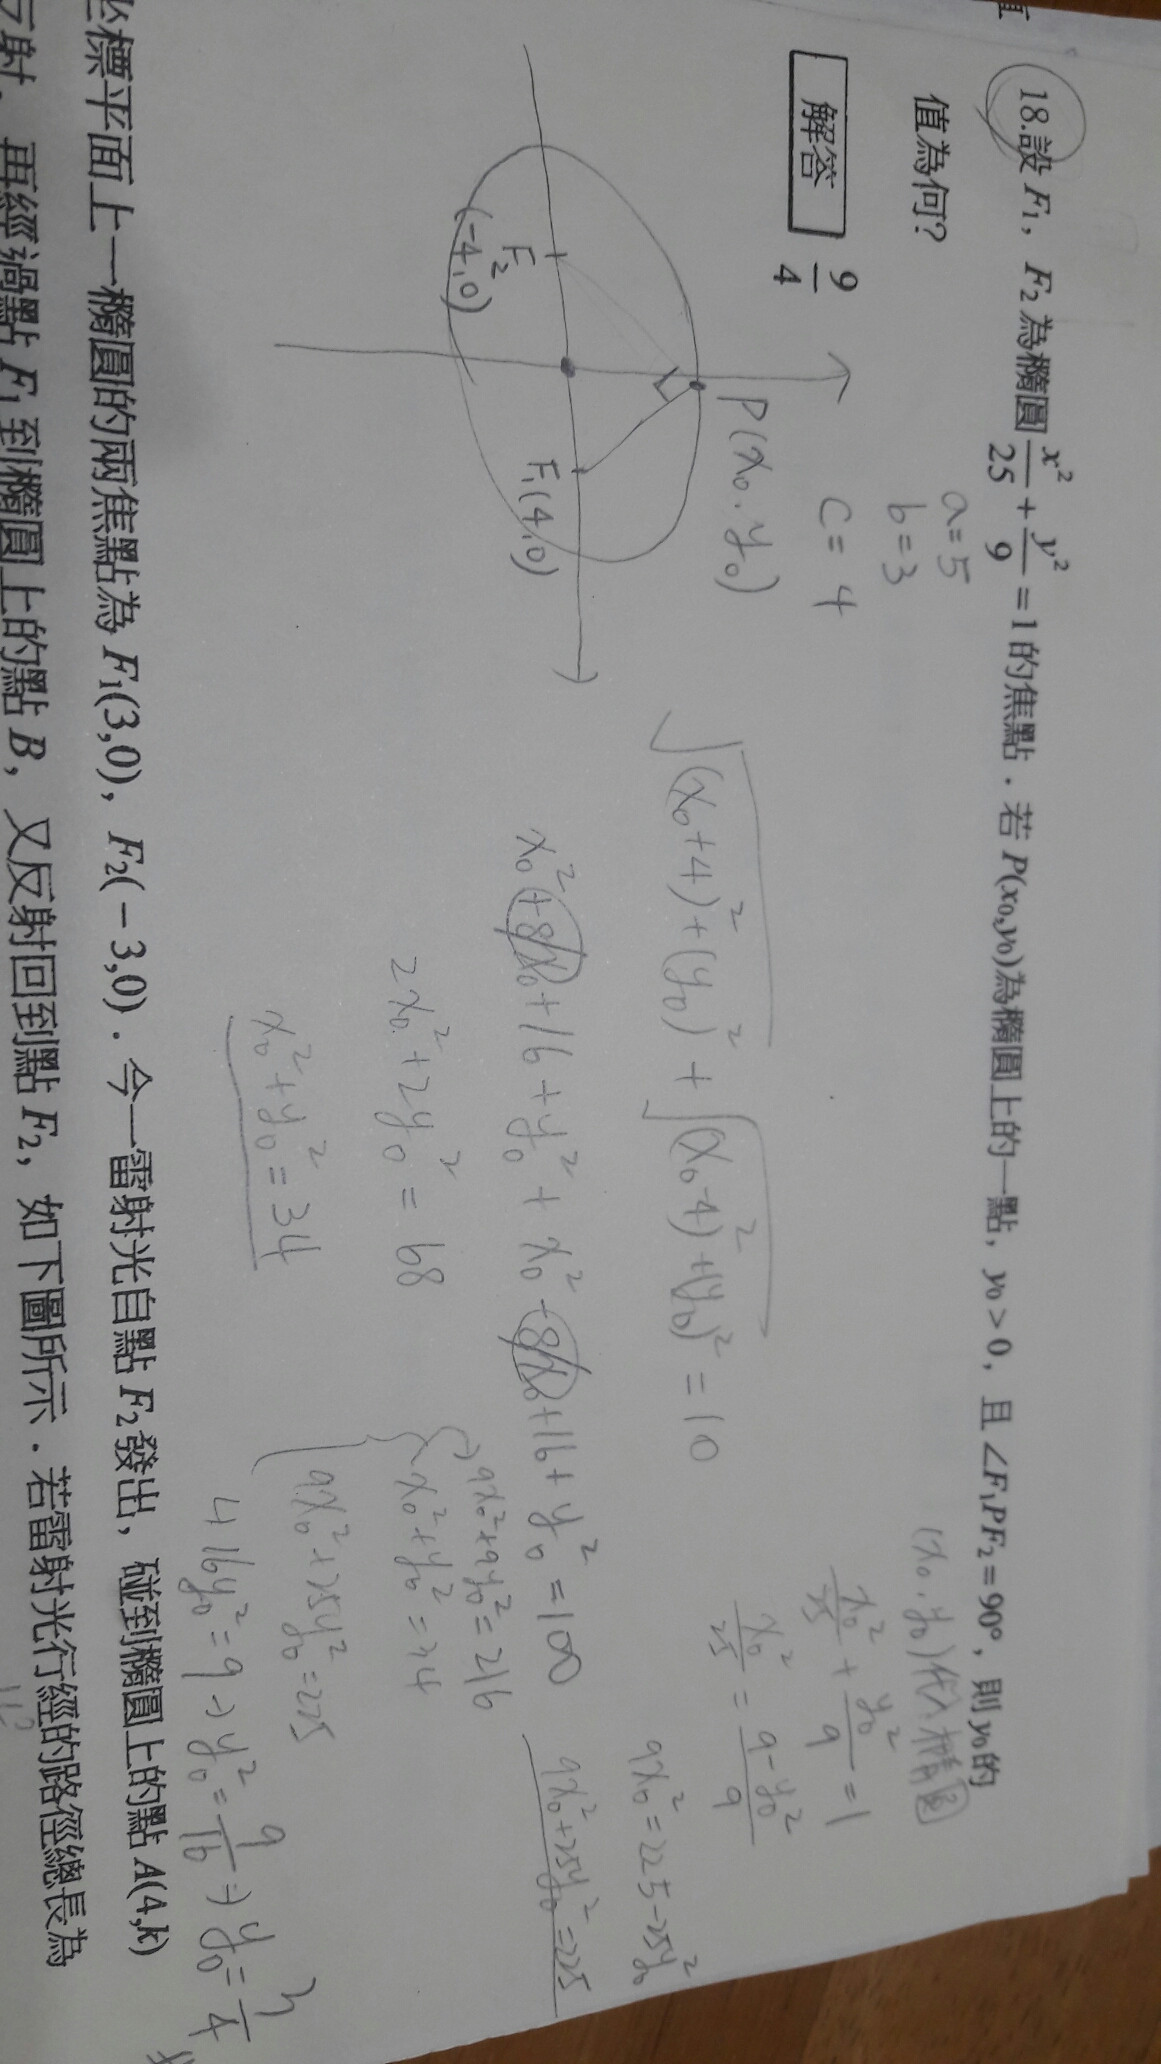 18.設 F₁，F₂ 為橢圓 x²/25 + y²/9 = 1 的焦點．若 P(x₀,y₀)為橢圓上的一點，y₀ > 0，且 ∠F₁PF₂ = 90°，則 y₀ 的
值為何?
解答 9/4
a=5
b=3
c=4
P(x₀,y₀)
F₂
(-4,0)
F₁(4,0)
√((x₀+4)²+(y₀)²) + √((x₀-4)²+(y₀)²) = 10
x₀²+8x₀+16+y₀²+x₀²-8x₀+16+y₀²=100
2x₀²+2y₀²=68
x₀²+y₀²=34
(x₀,y₀)代入橢圓
x₀²/25 + y₀²/9 = 1
x₀²/25 = (9-y₀²)/9
9x₀²=225-25y₀²
9x₀²+25y₀²=225
9x₀²+9y₀²=216
x₀²+y₀²=34
9x₀²+25y₀²=225
16y₀²=9 → y₀²=9/16 → y₀=3/4
坐標平面上一橢圓的兩焦點為 F₁(3,0)，F₂(－3,0)．今一雷射光自點 F₂ 發出，碰到橢圓上的點 A(4,k)
反射，再經過點 F₁ 到橢圓上的點 B，又反射回到點 F₂，如下圖所示．若雷射光行經的路徑總長為